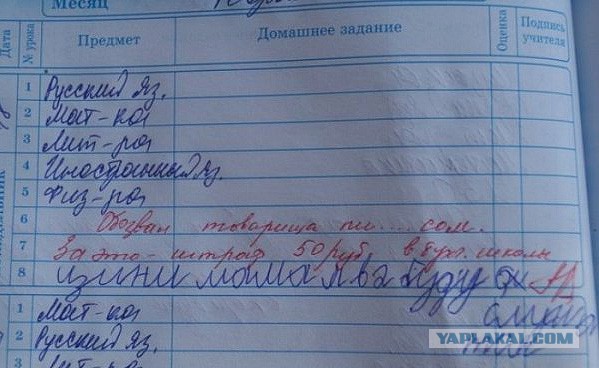 Месяц
Дата № урока Предмет Домашнее задание Оценка Подпись учителя
1 Русский яз.
2 Мат-ка
3 Лит-ра
4 Иностранный яз.
5 Физ-ра
6 Обозвал товарища пи... сом.
7 За это - штраф 50 руб. в бух. школы
8 изини мама я буду
1 Мат-ка
2 Русский яз.
3 Лит-ра
YAPLAKAL.COM